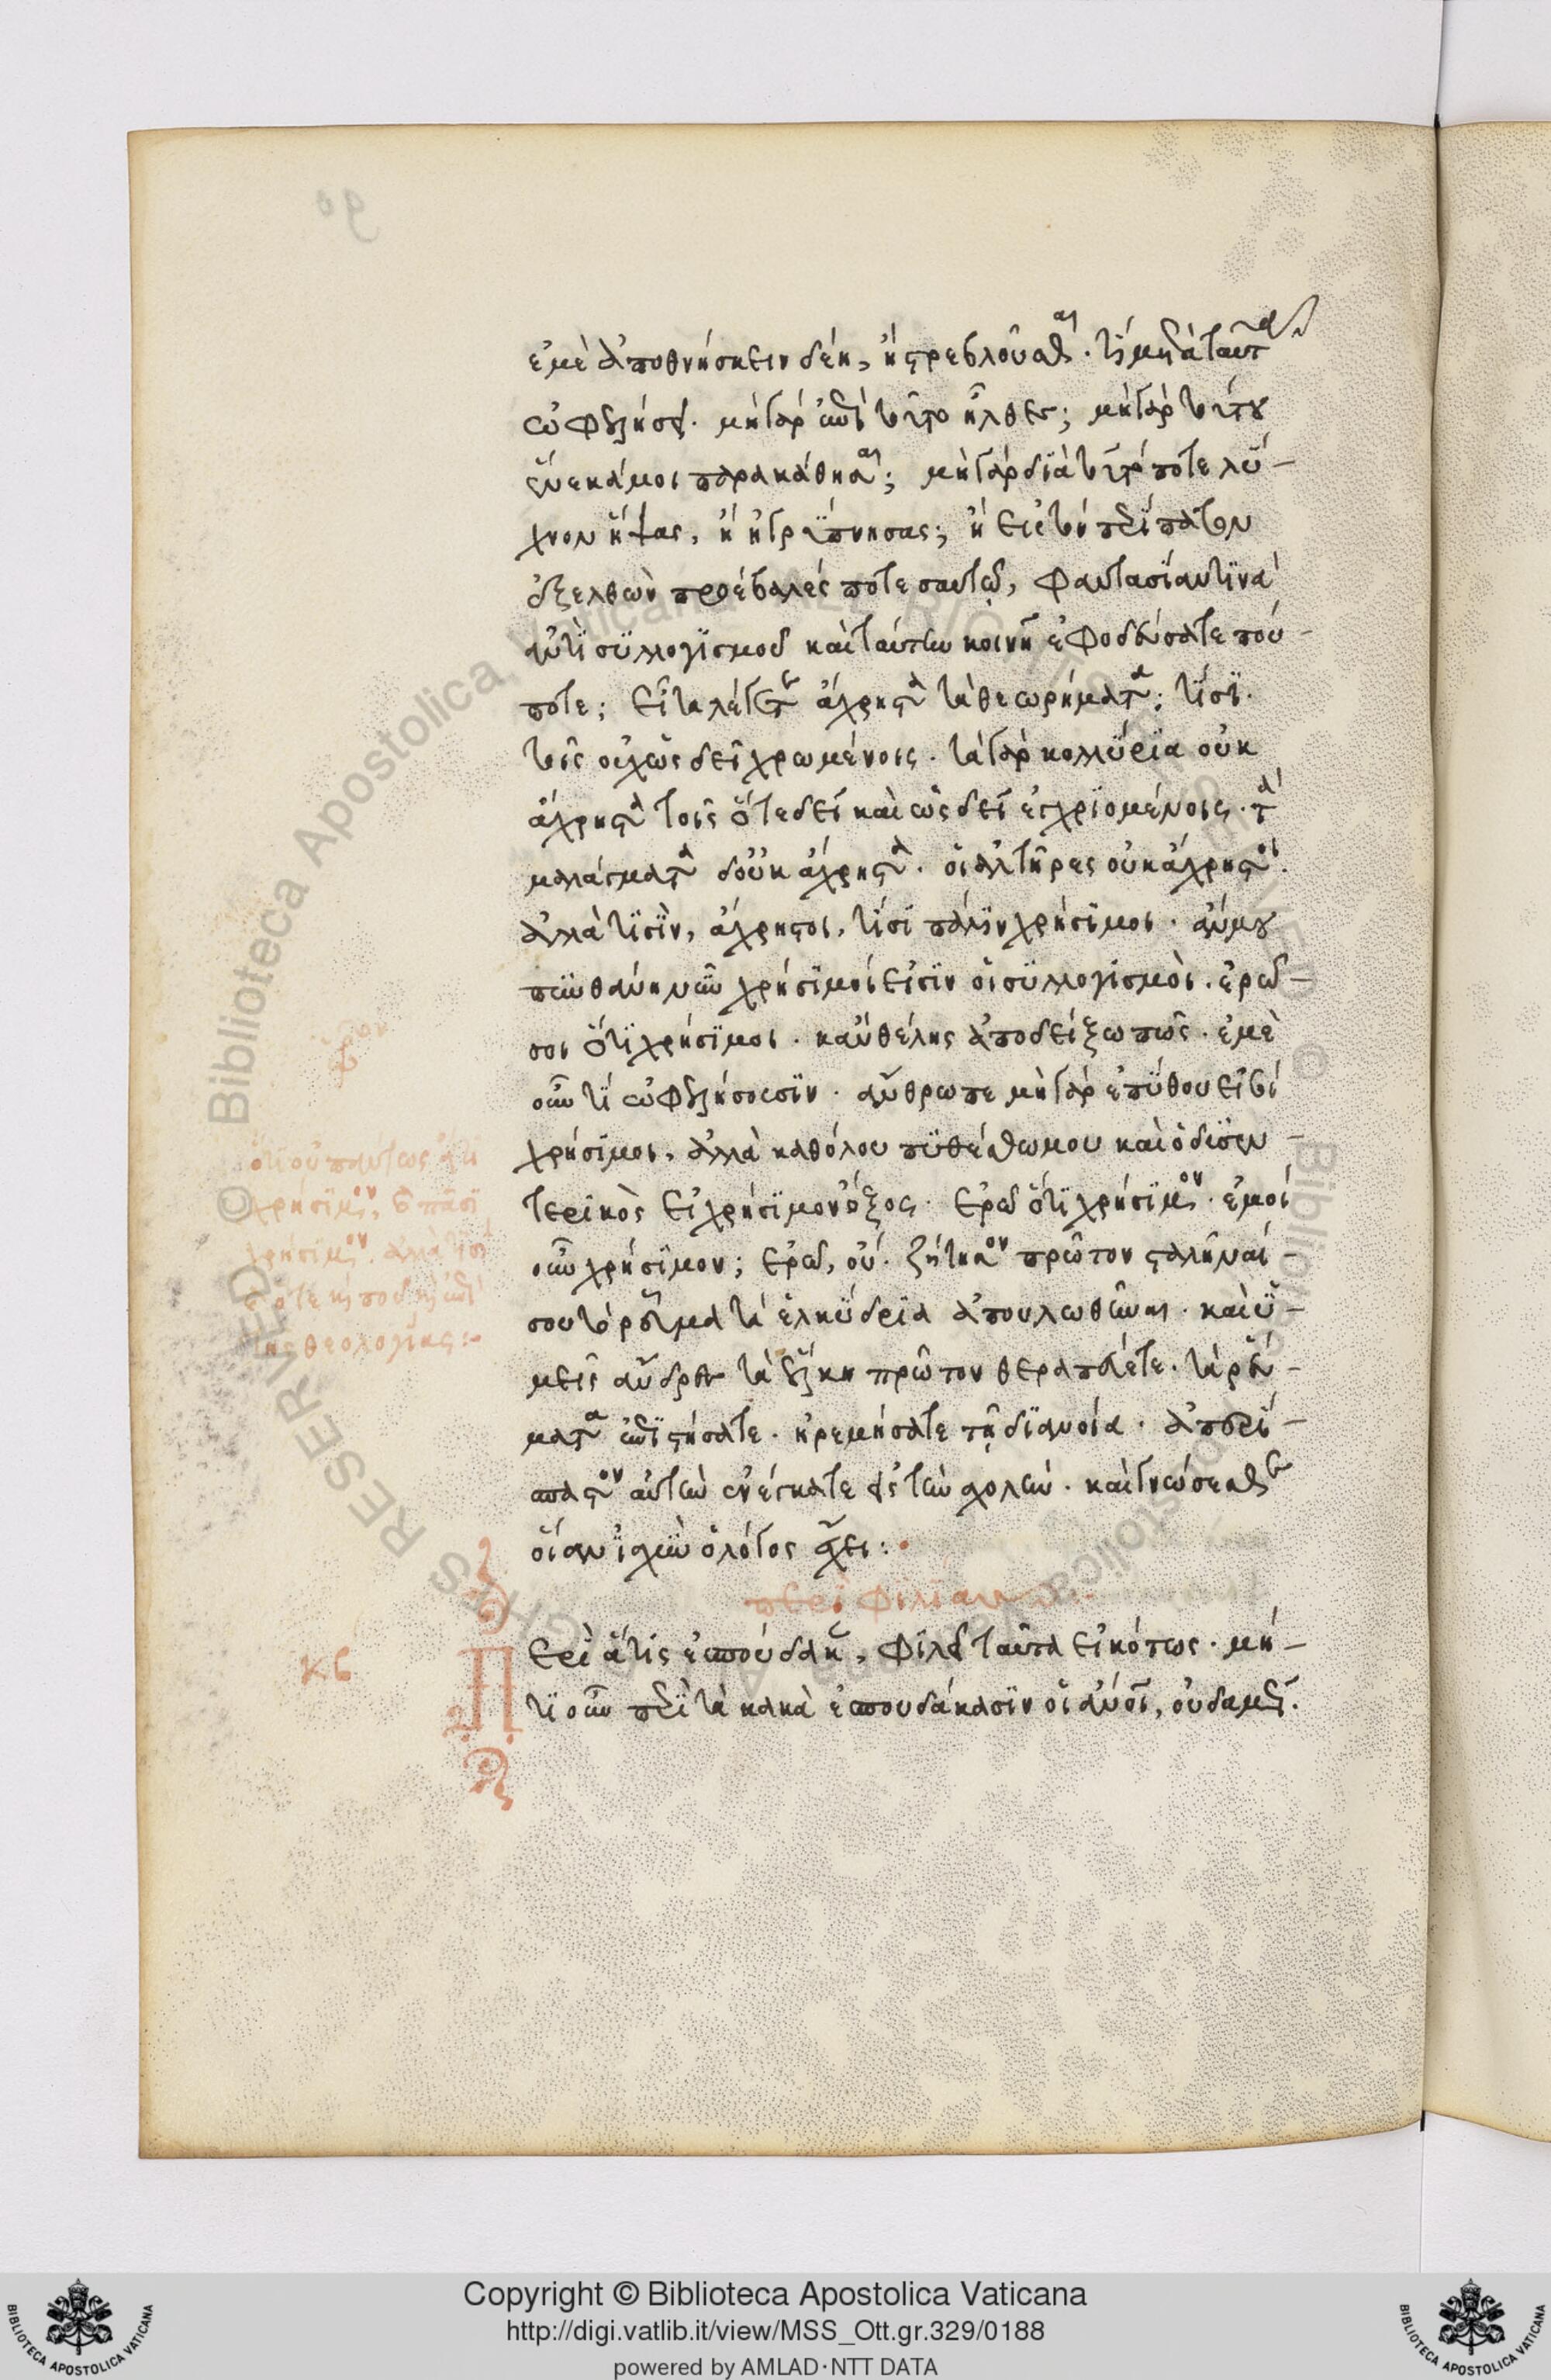 ἐμὲ ἀποθνήσκειν δέη, ἢ στρεβλοῦσθαι. τί μοι τὰ ταῦτα
ὠφελήσει. μὴ γὰρ ἐπὶ τοῦτο ἦλθες; μὴ γὰρ τούτου
ἕνεκά μοι παρακάθησαι; μὴ γὰρ διὰ τοῦτό ποτε λύ-
χνον ἧψας, ἢ ἠγρύπνησας; ἢ εἰς τὸν περίπατον
ἐξελθὼν προέβαλές ποτε σαυτῶ, φαντασίαν τινὰ
ἀντὶ συλλογισμοῦ καὶ ταύτην κοινῆ ἐφοδεύσατε πού-
ποτε; εἶτα λέγετε ἄχρηστα τὰ θεωρήματα; τίσι.
τοῖς οὐχ ὡς δεῖ χρωμένοις. τὰ γὰρ κολλύρια οὐκ
ἄχρηστα τοῖς ὅτε δεῖ καὶ ὡς δεῖ ἐγχριομένοις. τὰ
μαλάγματα δ' οὐκ ἄχρηστα. οἱ ἁλτῆρες οὐκ ἄχρηστοι.
ἀλλὰ τισὶν, ἄχρηστοι, τισὶ πάλιν χρήσιμοι. ἄν μου
πυνθάνη νῦν χρήσιμοί εἰσιν οἱ συλλογισμοὶ. ἐρῶ-
σοι ὅτι χρήσιμοι. κἂν θέλης ἀποδείξω πῶς. ἐμὲ
οὖν τί ὠφελήσουσιν. ἄνθρωπε μὴ γὰρ ἐπύθου εἰ σὶ
χρήσιμοι, ἀλλὰ καθόλου πυθέσθω μου καὶ ὁ δυσεν-
τερικὸς εἰ χρήσιμον ὄξος. ἐρῶ ὅτι χρήσιμον. ἐμοὶ
οὖν χρήσιμον; ἐρῶ, οὔ. ζήτησον πρῶτον σταλῆναί
σου τὸ ῥεῦμα τὰ ἑλκύδρια ἀπουλωθῆναι. καὶ ὑ-
μεῖς ἄνδρες τὰ ἕλκη πρῶτον θεραπεύετε. τὰ ῥεύ-
ματα ἐπιστήσατε. ἠρεμήσατε τῆ διανοία. ἀπερί-
σπαστον αὐτὴν ἐνέγκατε εἰς τὴν σχολήν. καὶ γνώσεσθε
οἵαν ἰσχὺν ὁ λόγος ἔχει:
περὶ φιλίας
κβ Περὶ ἅ τις ἐσπούδακε, φιλεῖ ταῦτα εἰκότως. μή-
τι οὖν περὶ τὰ κακὰ ἐσπουδάκασιν οἱ ἄνθρωποι, οὐδαμῶς.
ὅτι οὐ πάντως εἴ τι
χρήσιμον, καὶ πᾶσι
χρήσιμον. ἀλλὰ τισὶ
τῆς θεολογίας:
© Biblioteca Apostolica Vaticana
Copyright © Biblioteca Apostolica Vaticana
http://digi.vatlib.it/view/MSS_Ott.gr.329/0188
powered by AMLAD·NTT DATA
BIBLIOTECA APOSTOLICA VATICANA
BIBLIOTECA APOSTOLICA VATICANA